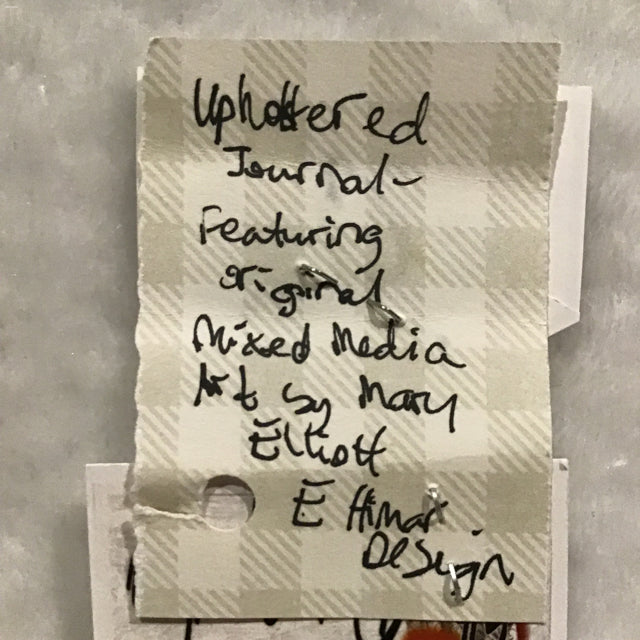 Upholstered
Journal-
Featuring
original
Mixed Media
Art by Mary
Elliott
Design